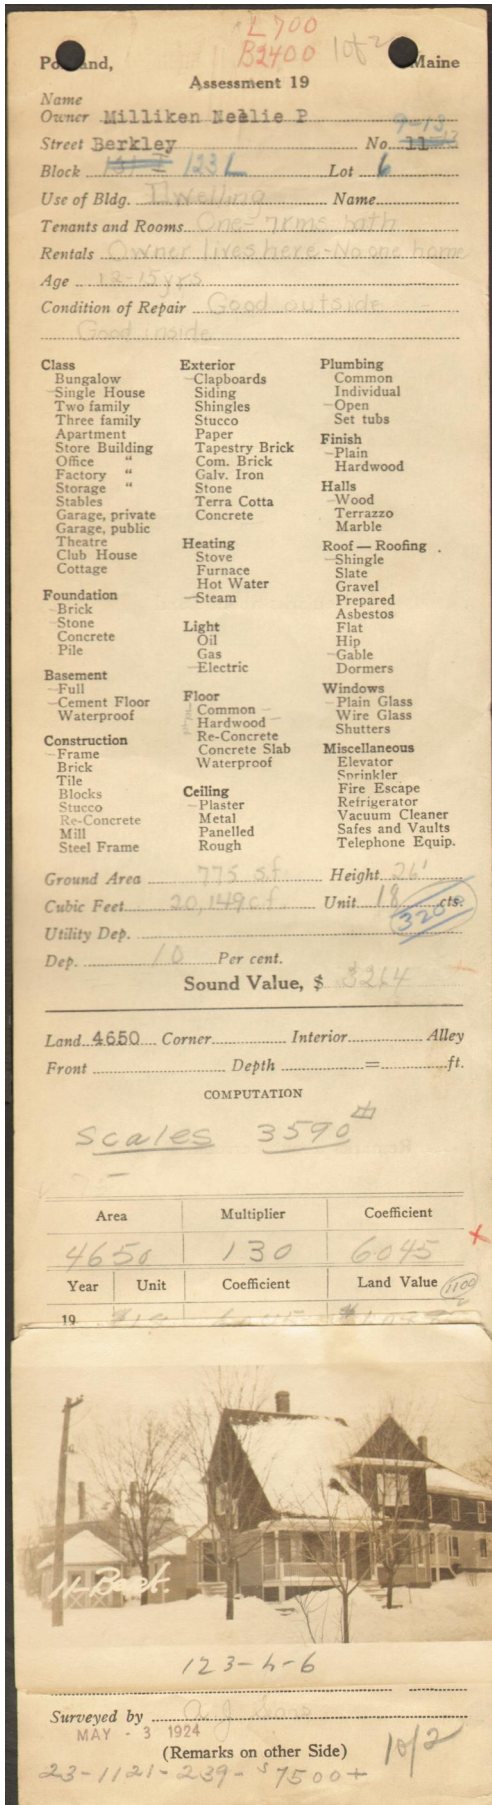 L 700
B2400 1 of 2
Portland, Maine
Assessment 19
Name
Owner Milliken Nellie P
9-13
Street Berkley No. 11-13
Block 123 L Lot 6
Use of Bldg. Dwelling Name
Tenants and Rooms One - 7 rms bath
Rentals Owner lives here - No one home
Age 12-15 yrs
Condition of Repair Good outside
Good inside
Class
Bungalow
Single House
Two family
Three family
Apartment
Store Building
Office "
Factory "
Storage "
Stables
Garage, private
Garage, public
Theatre
Club House
Cottage
Foundation
Brick
Stone
Concrete
Pile
Basement
Full
Cement Floor
Waterproof
Construction
Frame
Brick
Tile
Blocks
Stucco
Re-Concrete
Mill
Steel Frame
Exterior
Clapboards
Siding
Shingles
Stucco
Paper
Tapestry Brick
Com. Brick
Galv. Iron
Stone
Terra Cotta
Concrete
Heating
Stove
Furnace
Hot Water
Steam
Light
Oil
Gas
Electric
Floor
Common
Hardwood
Re-Concrete
Concrete Slab
Waterproof
Ceiling
Plaster
Metal
Panelled
Rough
Plumbing
Common
Individual
Open
Set tubs
Finish
Plain
Hardwood
Halls
Wood
Terrazzo
Marble
Roof — Roofing
Shingle
Slate
Gravel
Prepared
Asbestos
Flat
Hip
Gable
Dormers
Windows
Plain Glass
Wire Glass
Shutters
Miscellaneous
Elevator
Sprinkler
Fire Escape
Refrigerator
Vacuum Cleaner
Safes and Vaults
Telephone Equip.
Ground Area 775 s.f. Height 26'
Cubic Feet 20,149 c.f. Unit 18 cts.
Utility Dep.
Dep. 10 Per cent.
Sound Value, $ 3264
Land 4650 Corner Interior Alley
Front Depth = ft.
COMPUTATION
Scales 3590
Area Multiplier Coefficient
4650 130 6045
Year Unit Coefficient Land Value 1100
19
11-Beck.
123-L-6
Surveyed by
MAY - 3 1924
(Remarks on other Side) 1 of 2
23-1121-239- $7500+